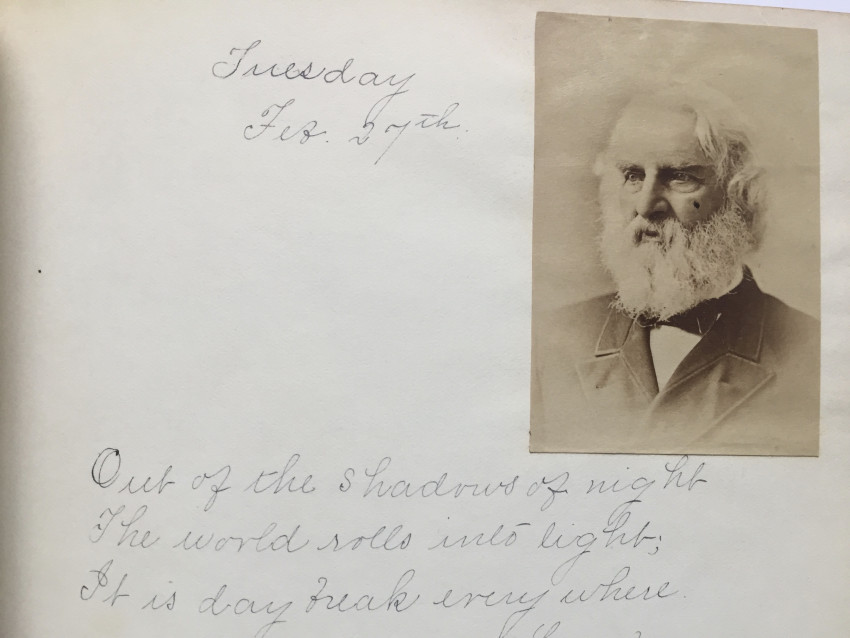 Tuesday
Feb. 27th.
Out of the shadows of night
The world rolls into light;
It is daybreak every where.